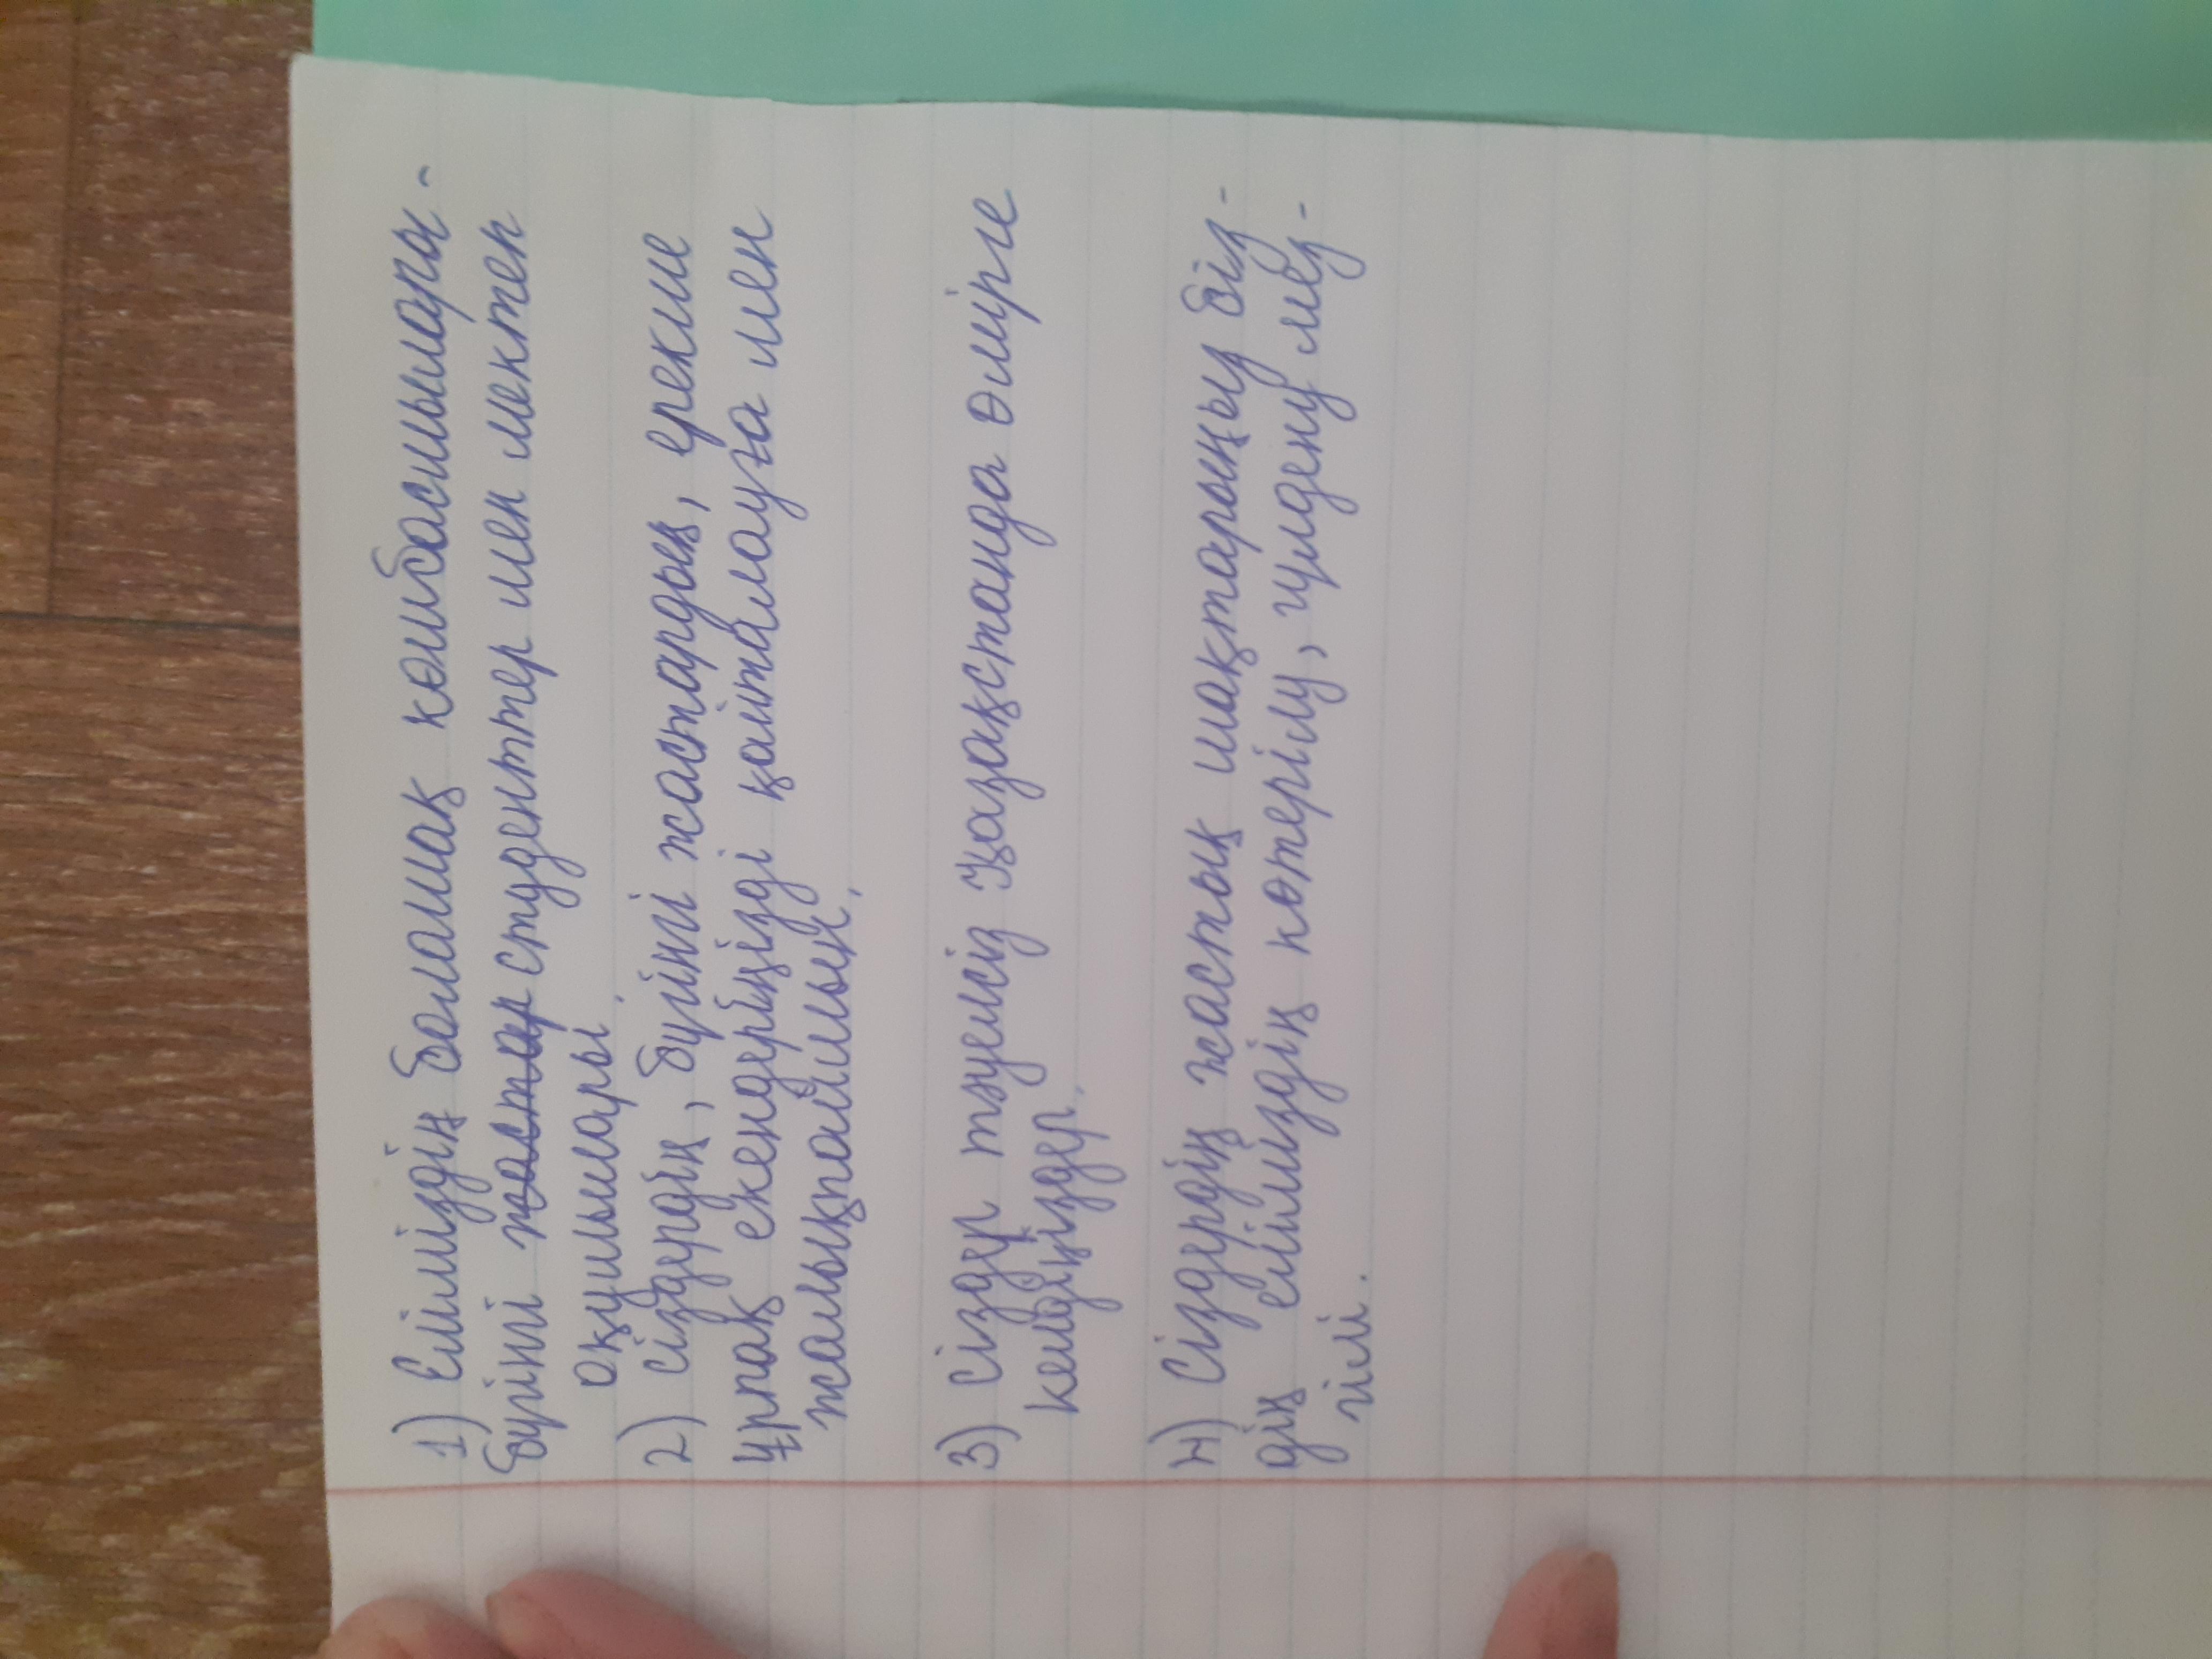 1) Еліміздің болашақ көшбасшылара -
бүгінгі жастар студенттер мен мектеп
оқушылары.
2) Сіздердің, бүгінгі жастардың, ерекше
ұрпақ екендеріңізді қайталауға мен
жалықпаймын.
3) Сіздер тәуелсіз Қазақстанда өмірге
келдіңіздер.
4) Сіздердің жастық шақтарыңыз біз-
дің еліміздің көтерілу, гүлдену мез-
гілі.